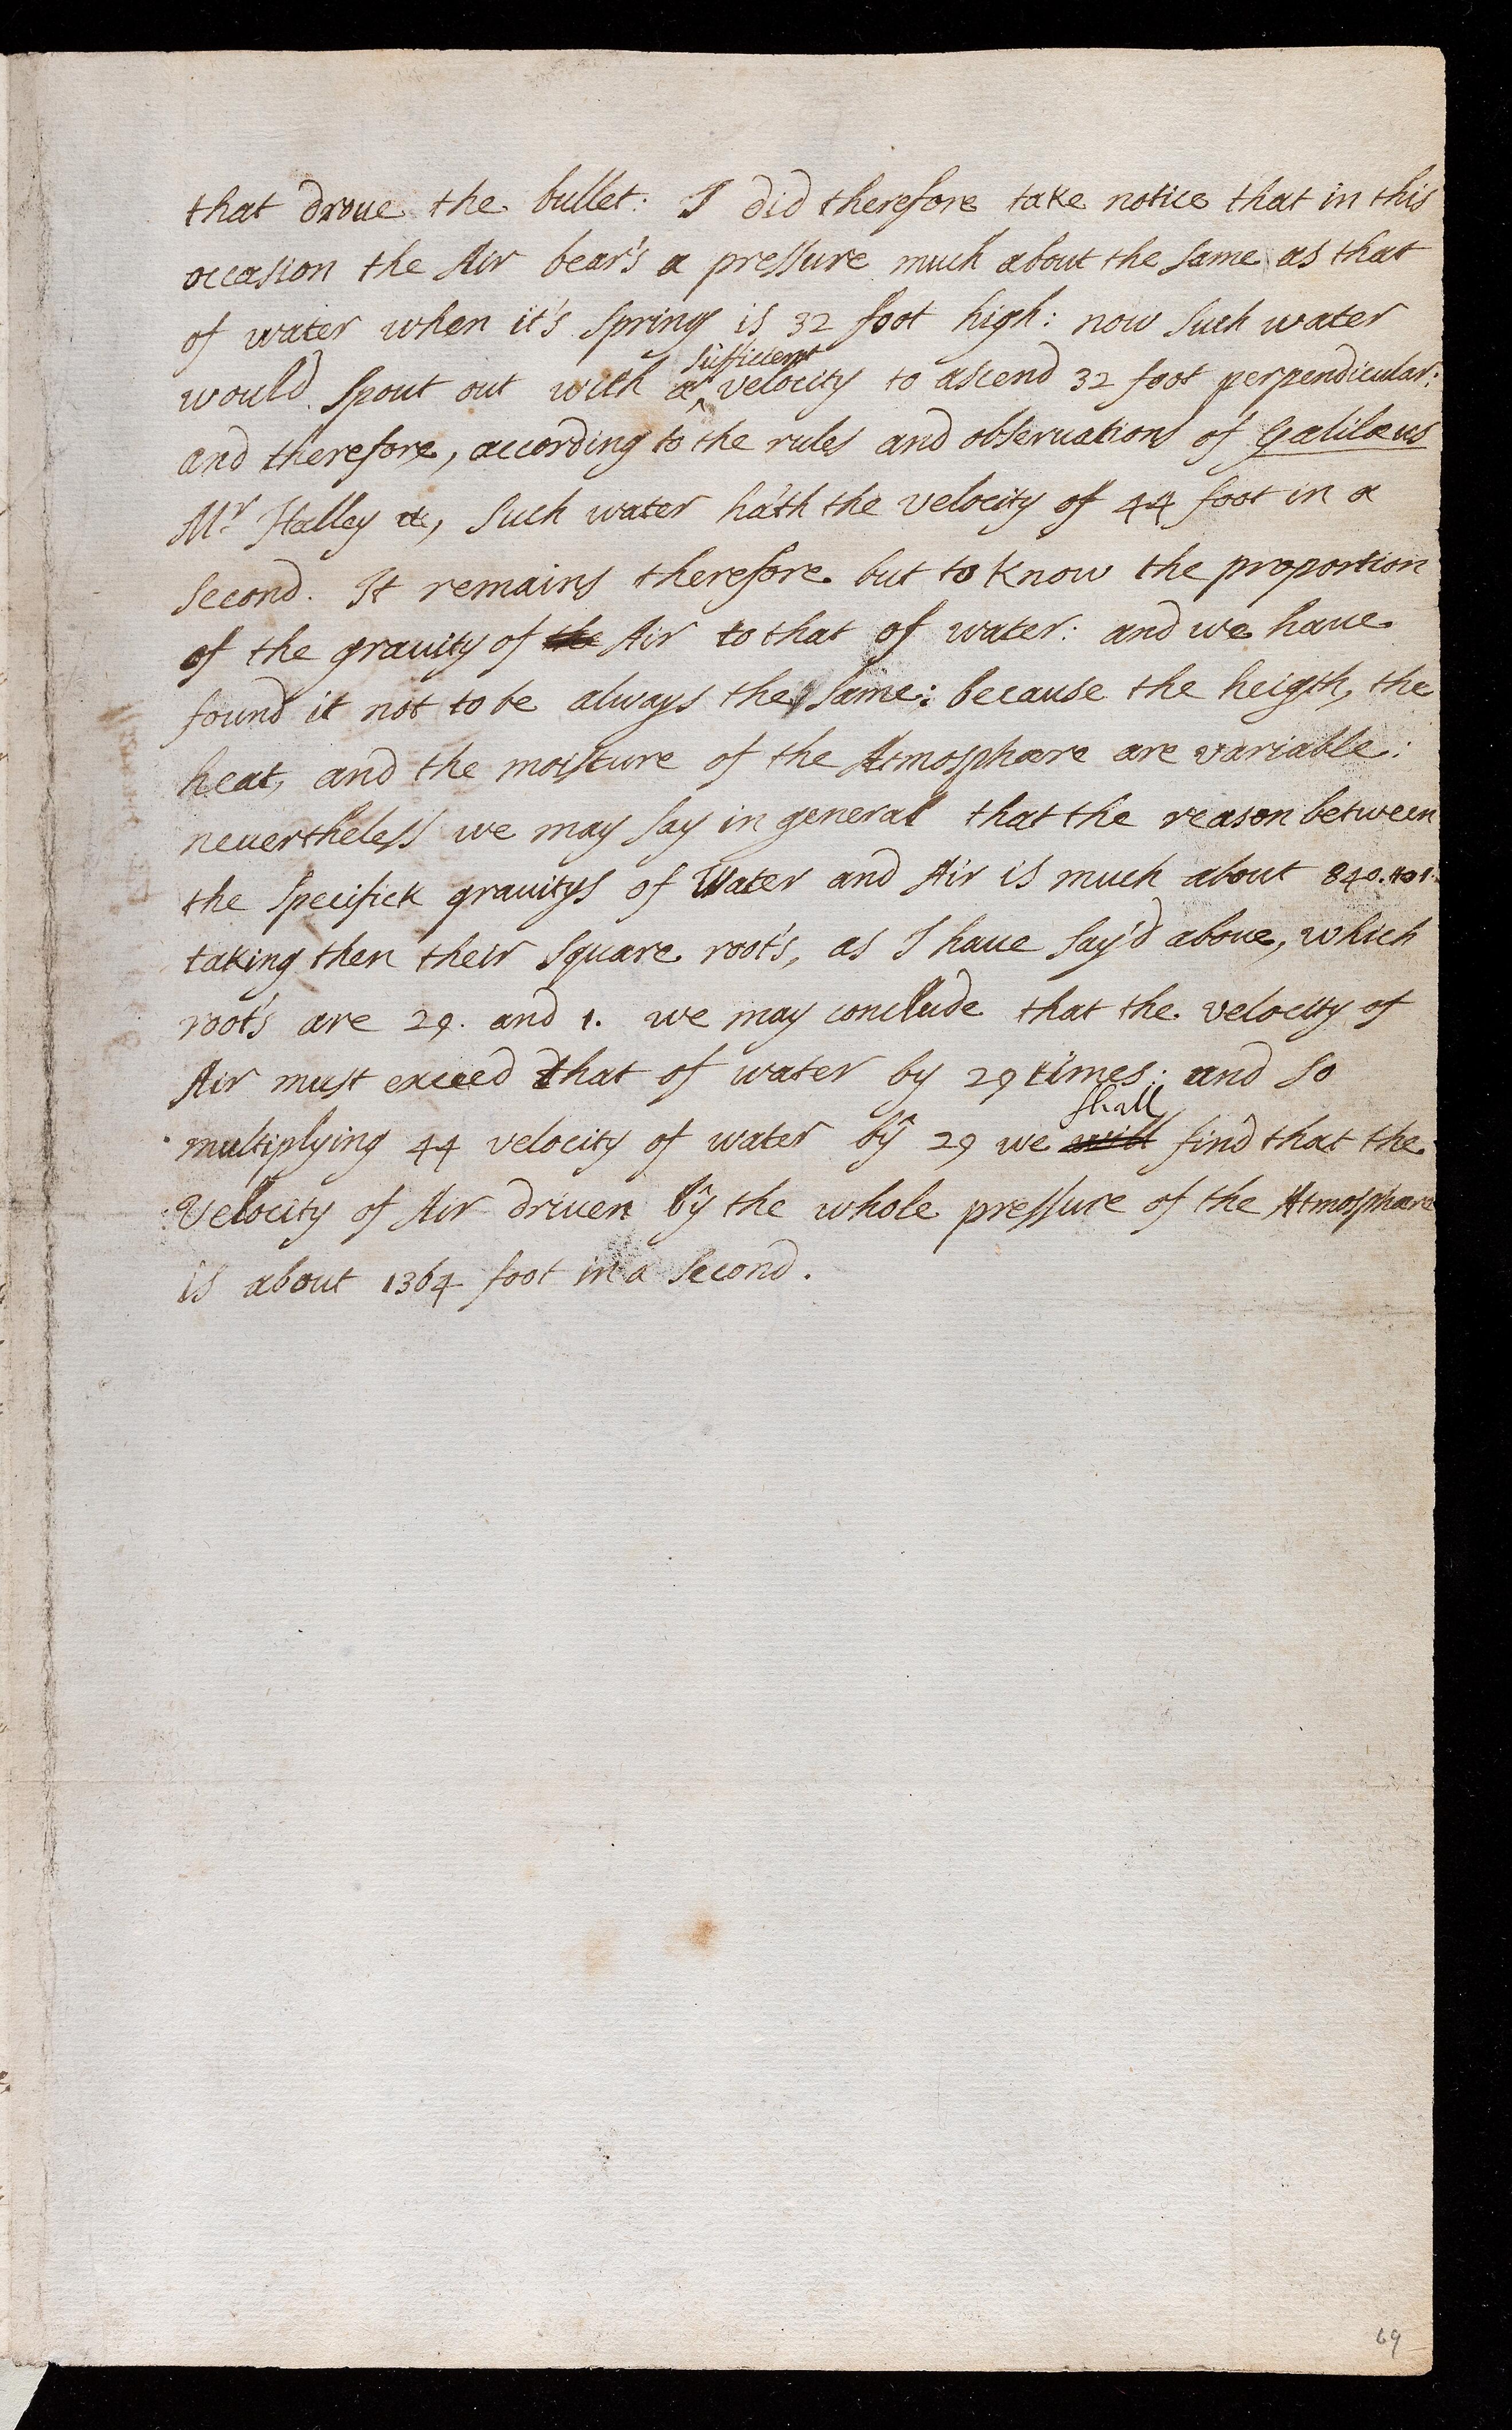 that droue the bullet: I did therefore take notice that in this
occasion the Air bear's a pressure much about the same as that
of water when it's spring is 32 foot high: now such water
sufficient
would spout out with a velocity to ascend 32 foot perpendicular:
and therefore, according to the rules and observations of Galilæus
Mr Halley &c, such water ha'th the velocity of 44 foot in a
second. It remains therefore but to know the proportion
of the grauity of the Air to that of water: and we haue
found it not to be always the same: because the heigth, the
heat, and the moisture of the Atmosphære are variable:
neuertheless we may say in general that the reason between
the specifick grauitys of Water and Air is much about 840. to 1.
taking then their square root's, as I haue say'd aboue, which
root's are 29. and 1. we may conclude that the velocity of
Air must exceed that of water by 29 times: and so
shall
multiplying 44 velocity of water by 29 we will find that the
Velocity of Air driuen by the whole pressure of the Atmosphære
is about 1364 foot in a second.
69